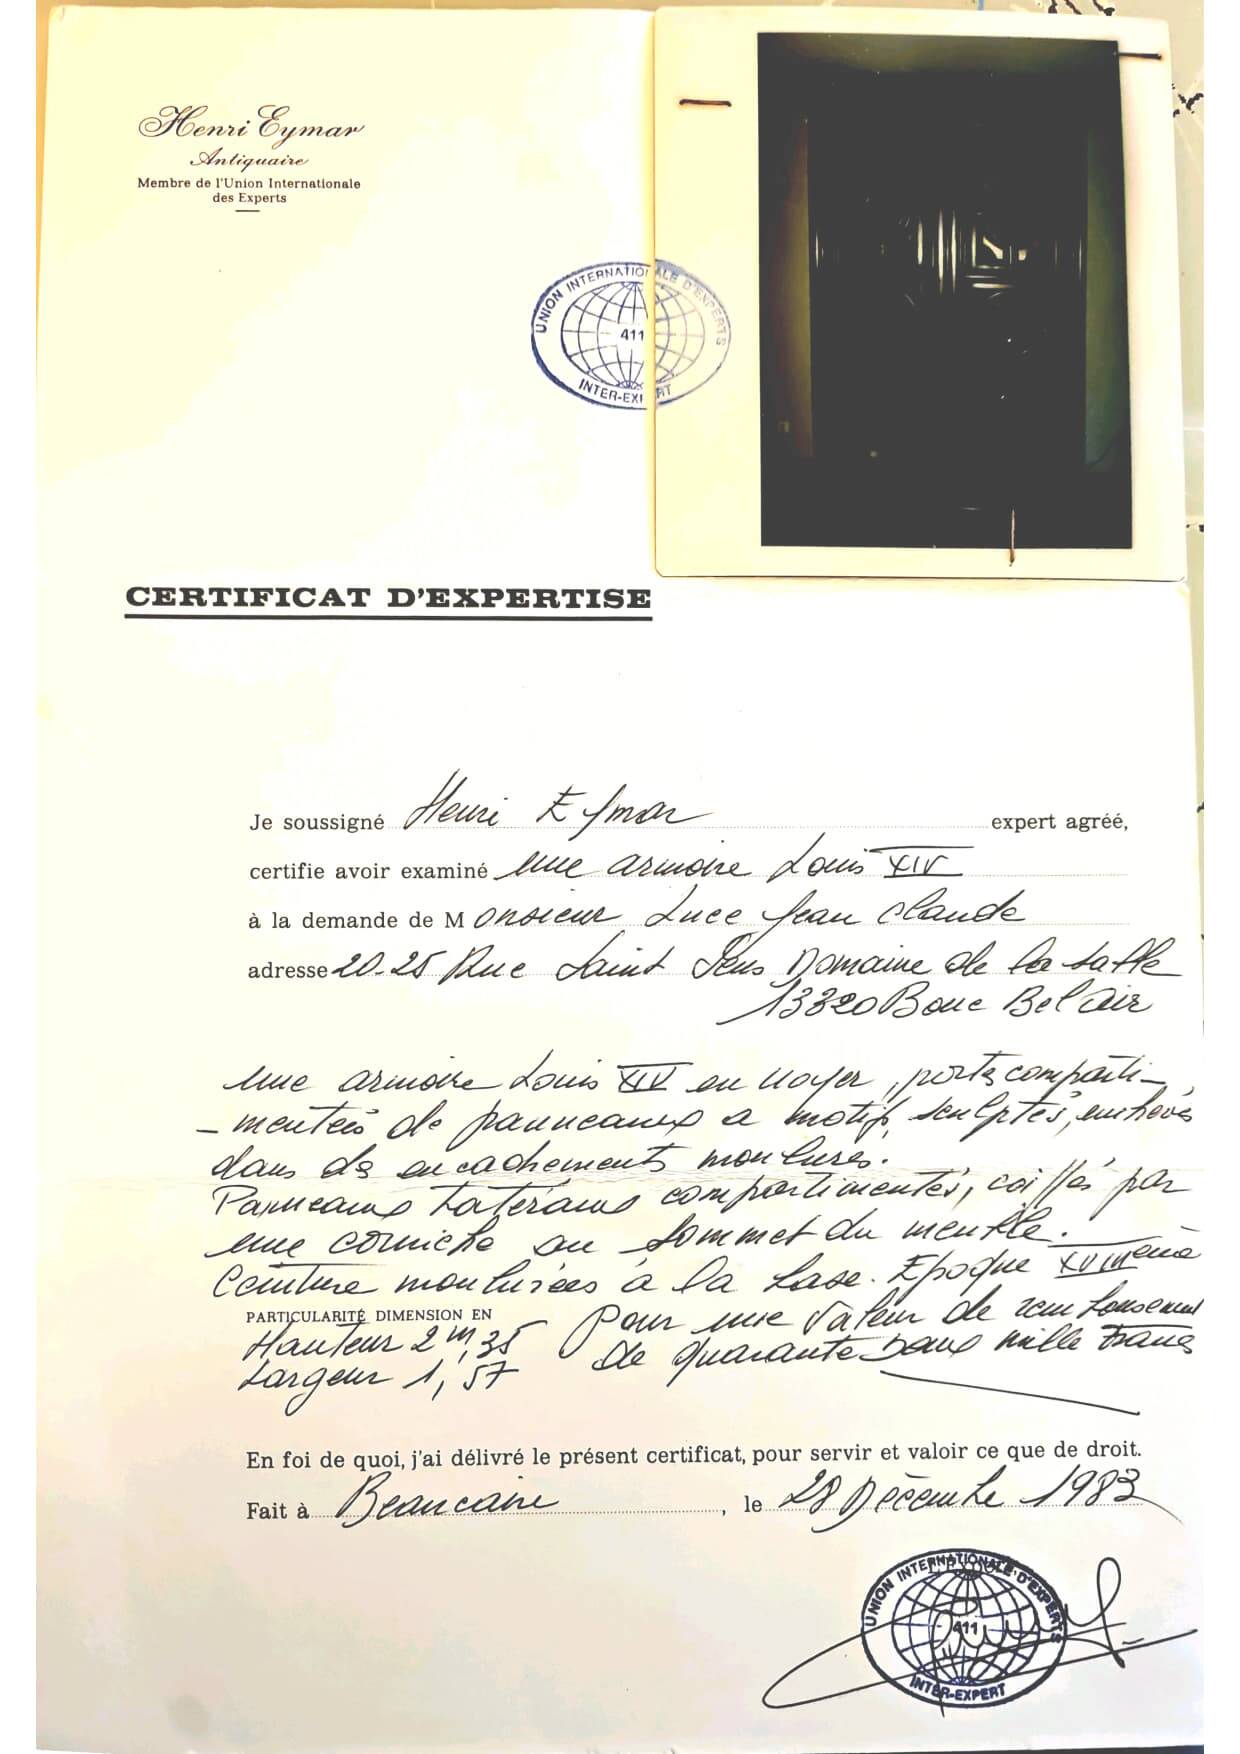 Henri Eymar
Antiquaire
Membre de l'Union Internationale
des Experts
UNION INTERNATIONALE D'EXPERTS
411
INTER-EXPERT
CERTIFICAT D'EXPERTISE
Je soussigné Henri Eymar expert agréé,
certifie avoir examiné une armoire Louis XIV
à la demande de Monsieur Luce Jean Claude
adresse 20-25 Rue Saint Jens Domaine de la salle
13320 Bouc Bel Air
une armoire Louis XIV en noyer, portes comparti-
-mentées de panneaux a motif sculptés,
dans des encachements moulurés.
Panneaux Latéraux compartimentés, coiffés par
une corniche au sommet du meuble.
Ceinture moulurées à la base. Epoque XVIIIeme
PARTICULARITÉ DIMENSION EN
Pour une valeur de remboursement
Hauteur 2m,35
de quarante Deux mille Francs
Largeur 1,57
En foi de quoi, j'ai délivré le présent certificat, pour servir et valoir ce que de droit.
Fait à Beaucaire, le 28 Décembre 1983
UNION INTERNATIONALE D'EXPERTS
411
INTER-EXPERT